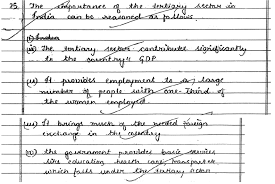 25. The importance of the tertiary sector in
India can be reasoned as follows.
(ii) The tertiary sector contribute significantly
to the country's GDP
(iii) It provides employment to a large
number of people with one-third of
the women employed.
(iv) It brings much of the needed foreign
exchange in the country
(v) the government provides basic services
like education health care, transportes
which falls under the tertiary sector